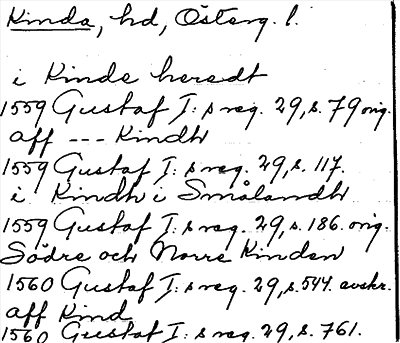 Kinda, hd, Österg. l.
i Kinde heredt
1559 Gustaf I: s reg. 29, s. 79 orig.
aff --- Kindh
1559 Gustaf I: s reg. 29, s. 117.
i Kindh i Smålandh
1559 Gustaf I: s reg. 29, s. 186. orig.
Södre och Norre Kinden
1560 Gustaf I: s reg. 29, s. 544. avskr.
aff Kind
1560 Gustaf I: s reg. 29, s. 761.